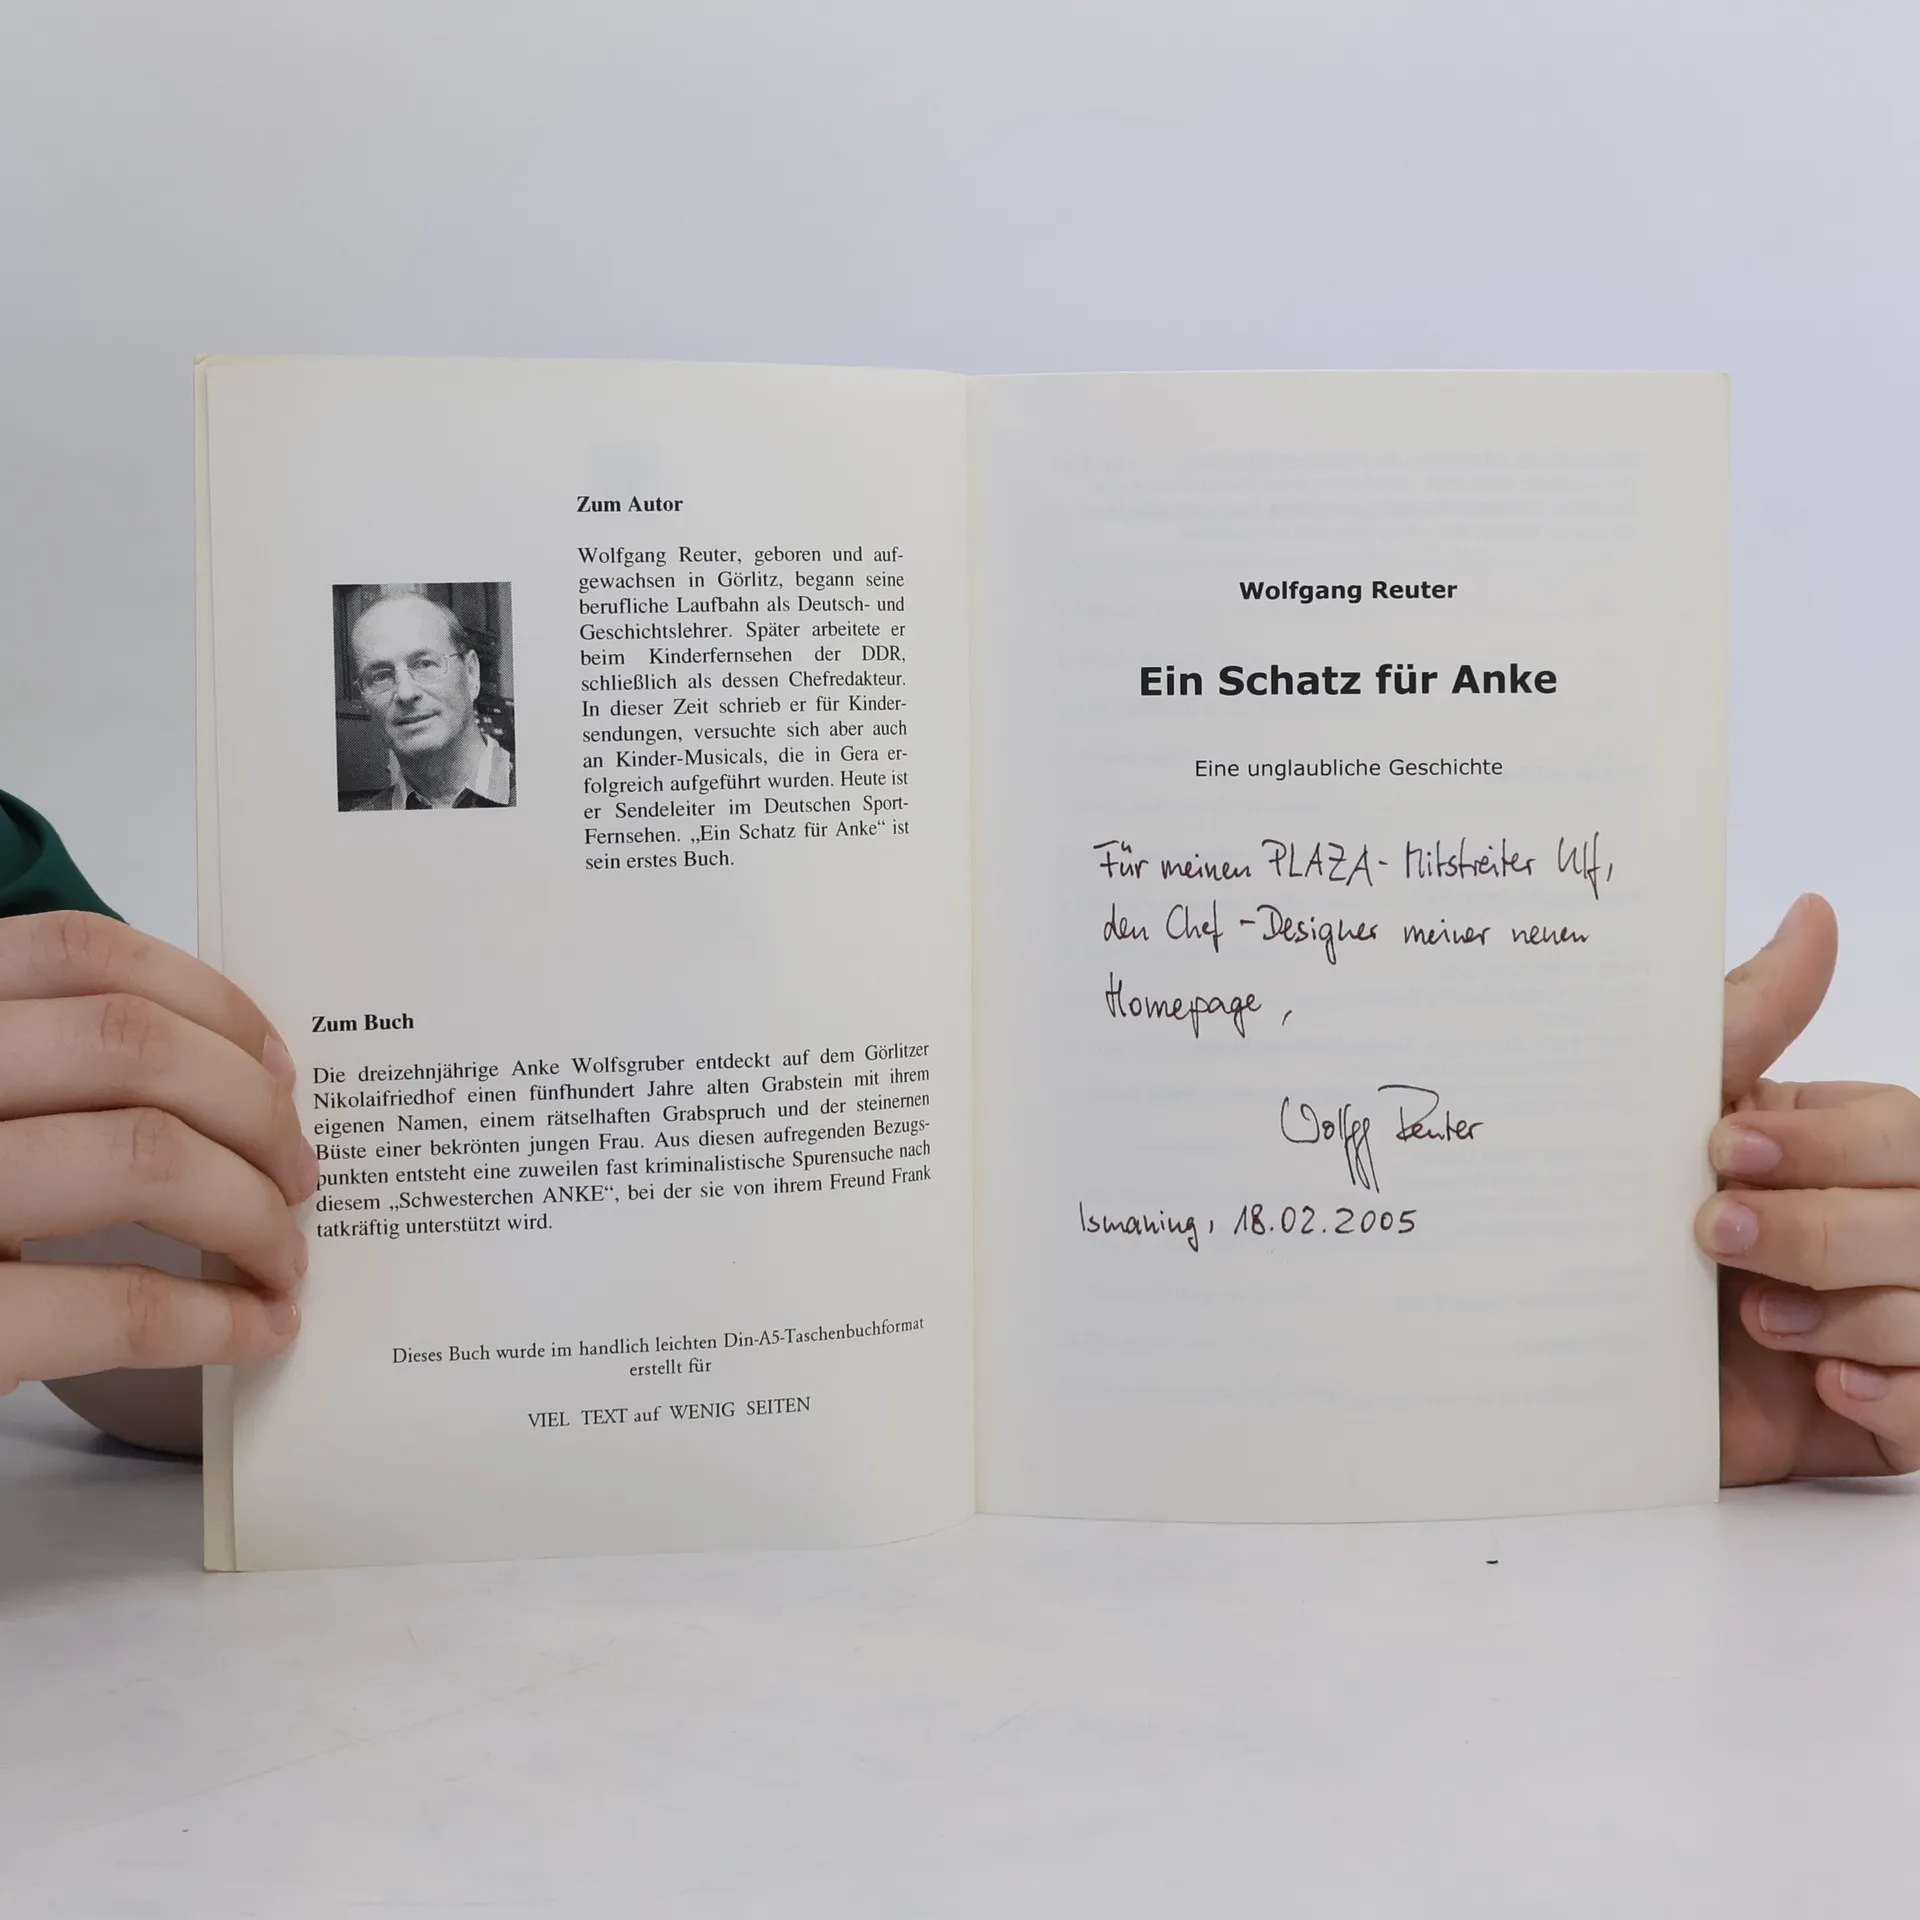 Zum Autor
Wolfgang Reuter, geboren und auf-
gewachsen in Görlitz, begann seine
berufliche Laufbahn als Deutsch- und
Geschichtslehrer. Später arbeitete er
beim Kinderfernsehen der DDR,
schließlich als dessen Chefredakteur.
In dieser Zeit schrieb er für Kinder-
sendungen, versuchte sich aber auch
an Kinder-Musicals, die in Gera er-
folgreich aufgeführt wurden. Heute ist
er Sendeleiter im Deutschen Sport-
Fernsehen. „Ein Schatz für Anke“ ist
sein erstes Buch.
Zum Buch
Die dreizehnjährige Anke Wolfsgruber entdeckt auf dem Görlitzer
Nikolaifriedhof einen fünfhundert Jahre alten Grabstein mit ihrem
eigenen Namen, einem rätselhaften Grabspruch und der steinernen
Büste einer bekrönten jungen Frau. Aus diesen aufregenden Bezugs-
punkten entsteht eine zuweilen fast kriminalistische Spurensuche nach
diesem „Schwesterchen ANKE“, bei der sie von ihrem Freund Frank
tatkräftig unterstützt wird.
Dieses Buch wurde im handlich leichten Din-A5-Taschenbuchformat
erstellt für
VIEL TEXT auf WENIG SEITEN
Wolfgang Reuter
Ein Schatz für Anke
Eine unglaubliche Geschichte
Für meinen PLAZA-Mitstreiter Ulf,
den Chef-Designer meiner neuen
Homepage,
Wolfgg Reuter
Ismaning, 18.02.2005